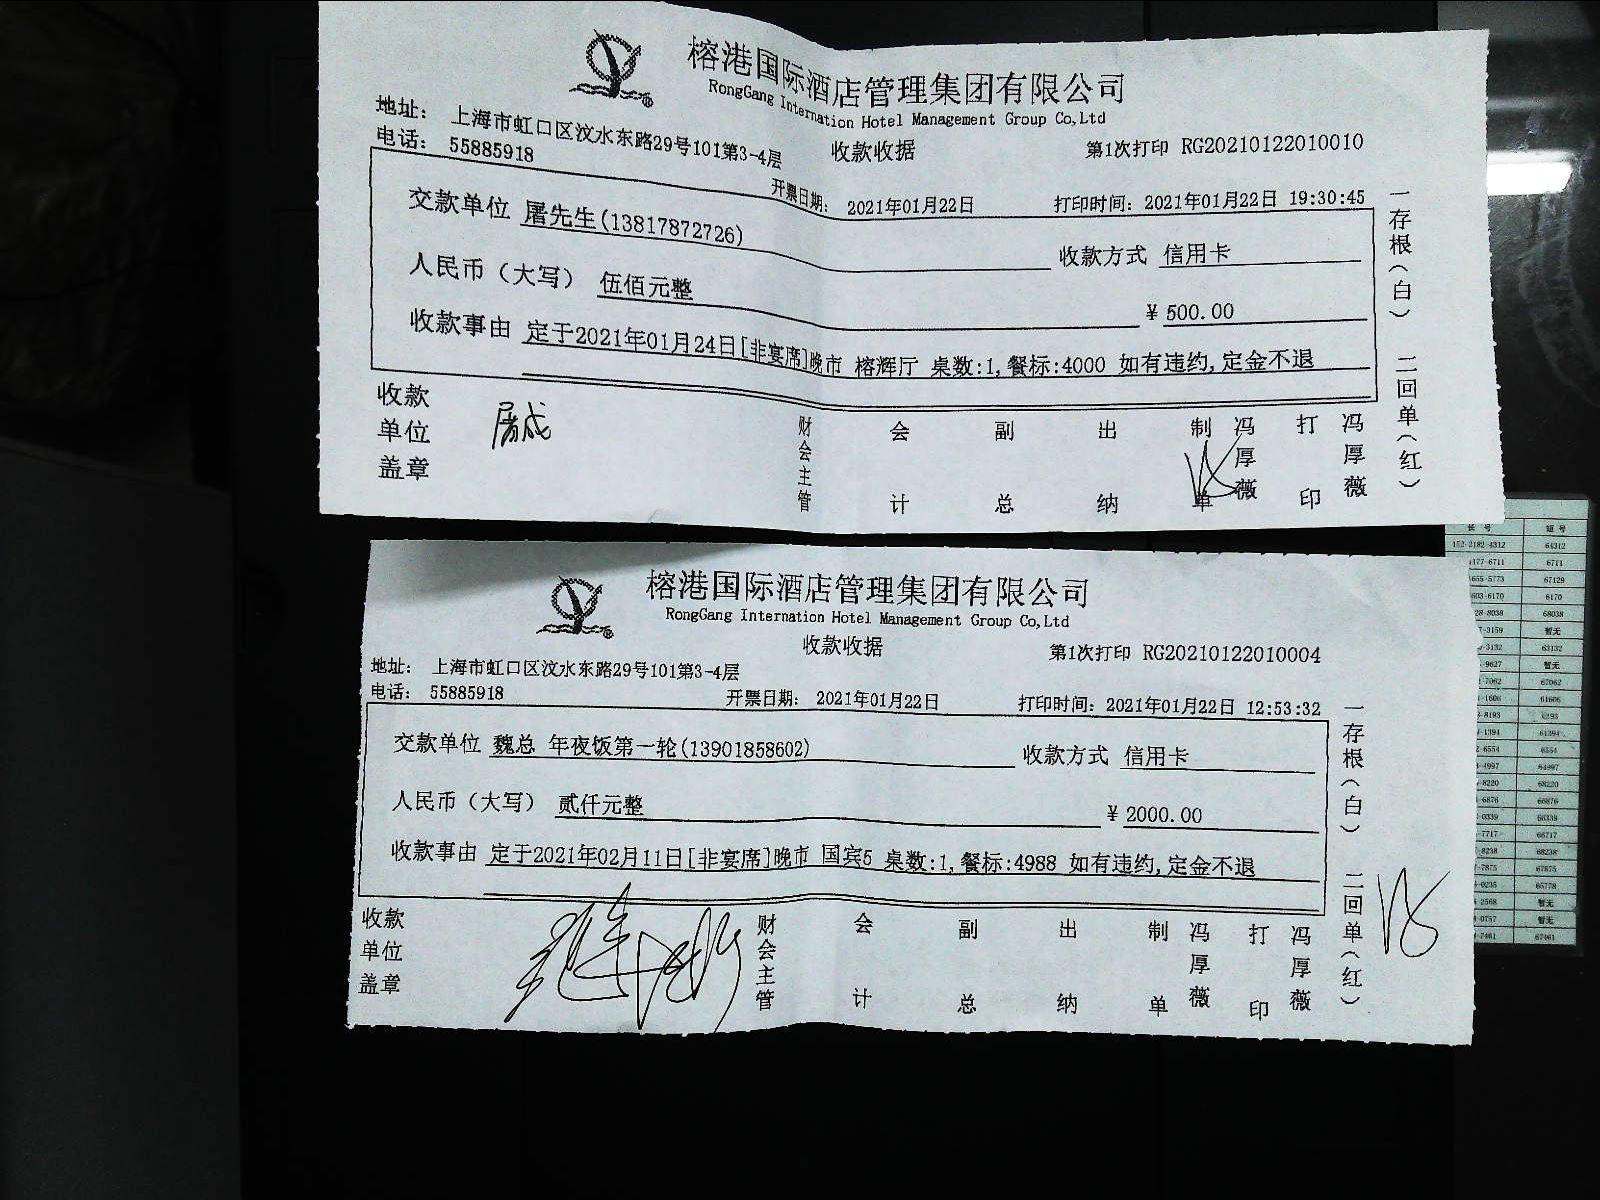 榕港国际酒店管理集团有限公司
RongGang Internation Hotel Management Group Co,Ltd
地址： 上海市虹口区汶水东路29号101第3-4层
电话： 55885918
收款收据
第1次打印 RG20210122010010
开票日期： 2021年01月22日
打印时间：2021年01月22日 19:30:45
交款单位 屠先生(13817872726)
收款方式 信用卡
人民币（大写） 伍佰元整
￥500.00
收款事由 定于2021年01月24日[非宴席]晚市 榕辉厅 桌数:1,餐标:4000 如有违约,定金不退
收款单位盖章
财会主管
会计
副总
出纳
制单
冯厚薇
打印
冯厚薇
一存根（白） 二回单（红）
榕港国际酒店管理集团有限公司
RongGang Internation Hotel Management Group Co,Ltd
收款收据
第1次打印 RG20210122010004
地址： 上海市虹口区汶水东路29号101第3-4层
电话： 55885918
开票日期： 2021年01月22日
打印时间：2021年01月22日 12:53:32
交款单位 魏总 年夜饭第一轮(13901858602)
收款方式 信用卡
人民币（大写） 贰仟元整
￥2000.00
收款事由 定于2021年02月11日[非宴席]晚市 国宾5 桌数:1,餐标:4988 如有违约,定金不退
收款单位盖章
财会主管
会计
副总
出纳
制单
冯厚薇
打印
冯厚薇
一存根（白） 二回单（红）
长号 短号